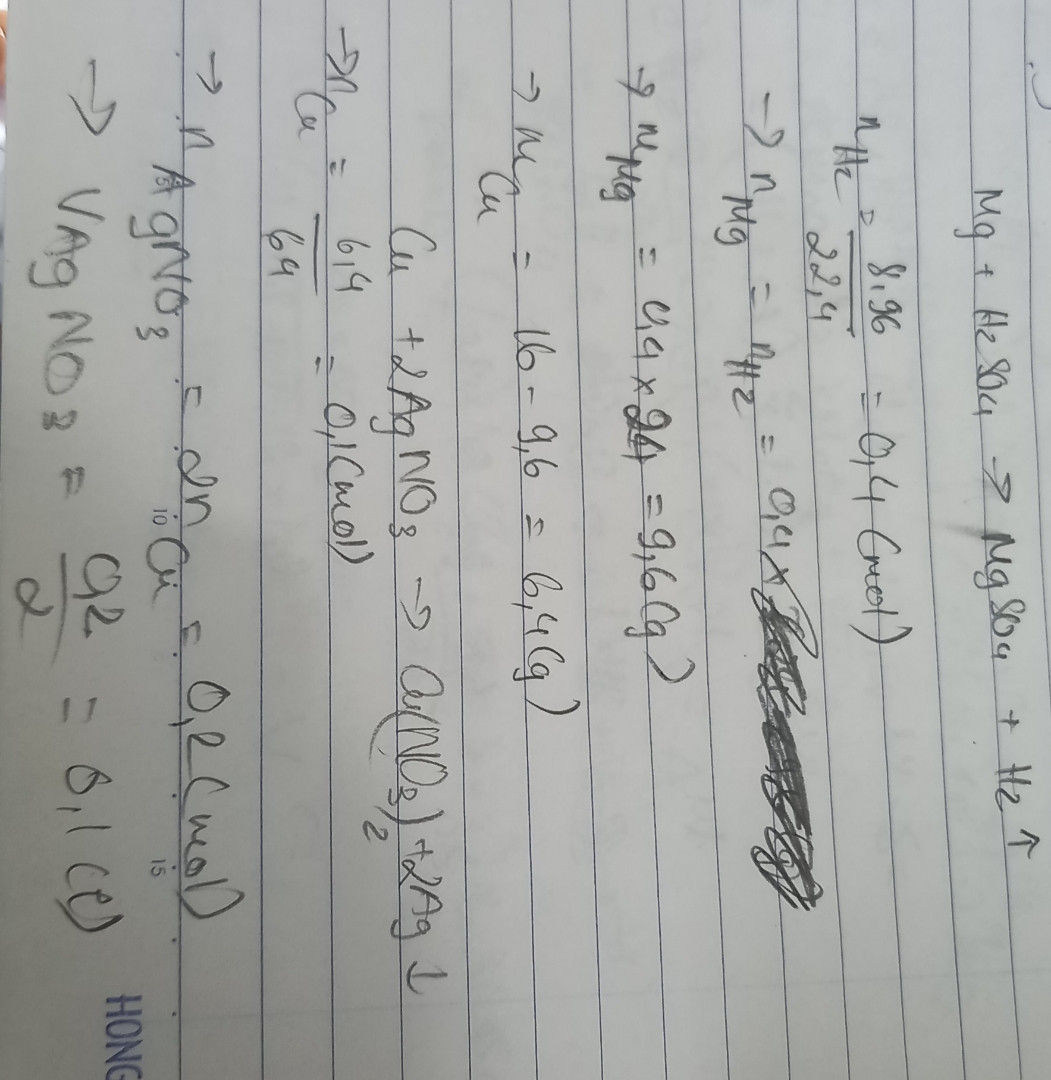 Mg + H2SO4 → MgSO4 + H2 ↑
nH2 = 8,96 / 22,4 = 0,4 (mol)
→ nMg = nH2 = 0,4 x
→ mMg = 0,4 x 24 = 9,6 (g)
→ mCu = 16 - 9,6 = 6,4 (g)
Cu + 2AgNO3 → Cu(NO3)2 + 2Ag ↓
→ nCu = 6,4 / 64 = 0,1 (mol)
→ nAgNO3 = 2nCu = 0,2 (mol)
→ VAgNO3 = 0,2 / 2 = 0,1 (l)
5 10 15
HONG